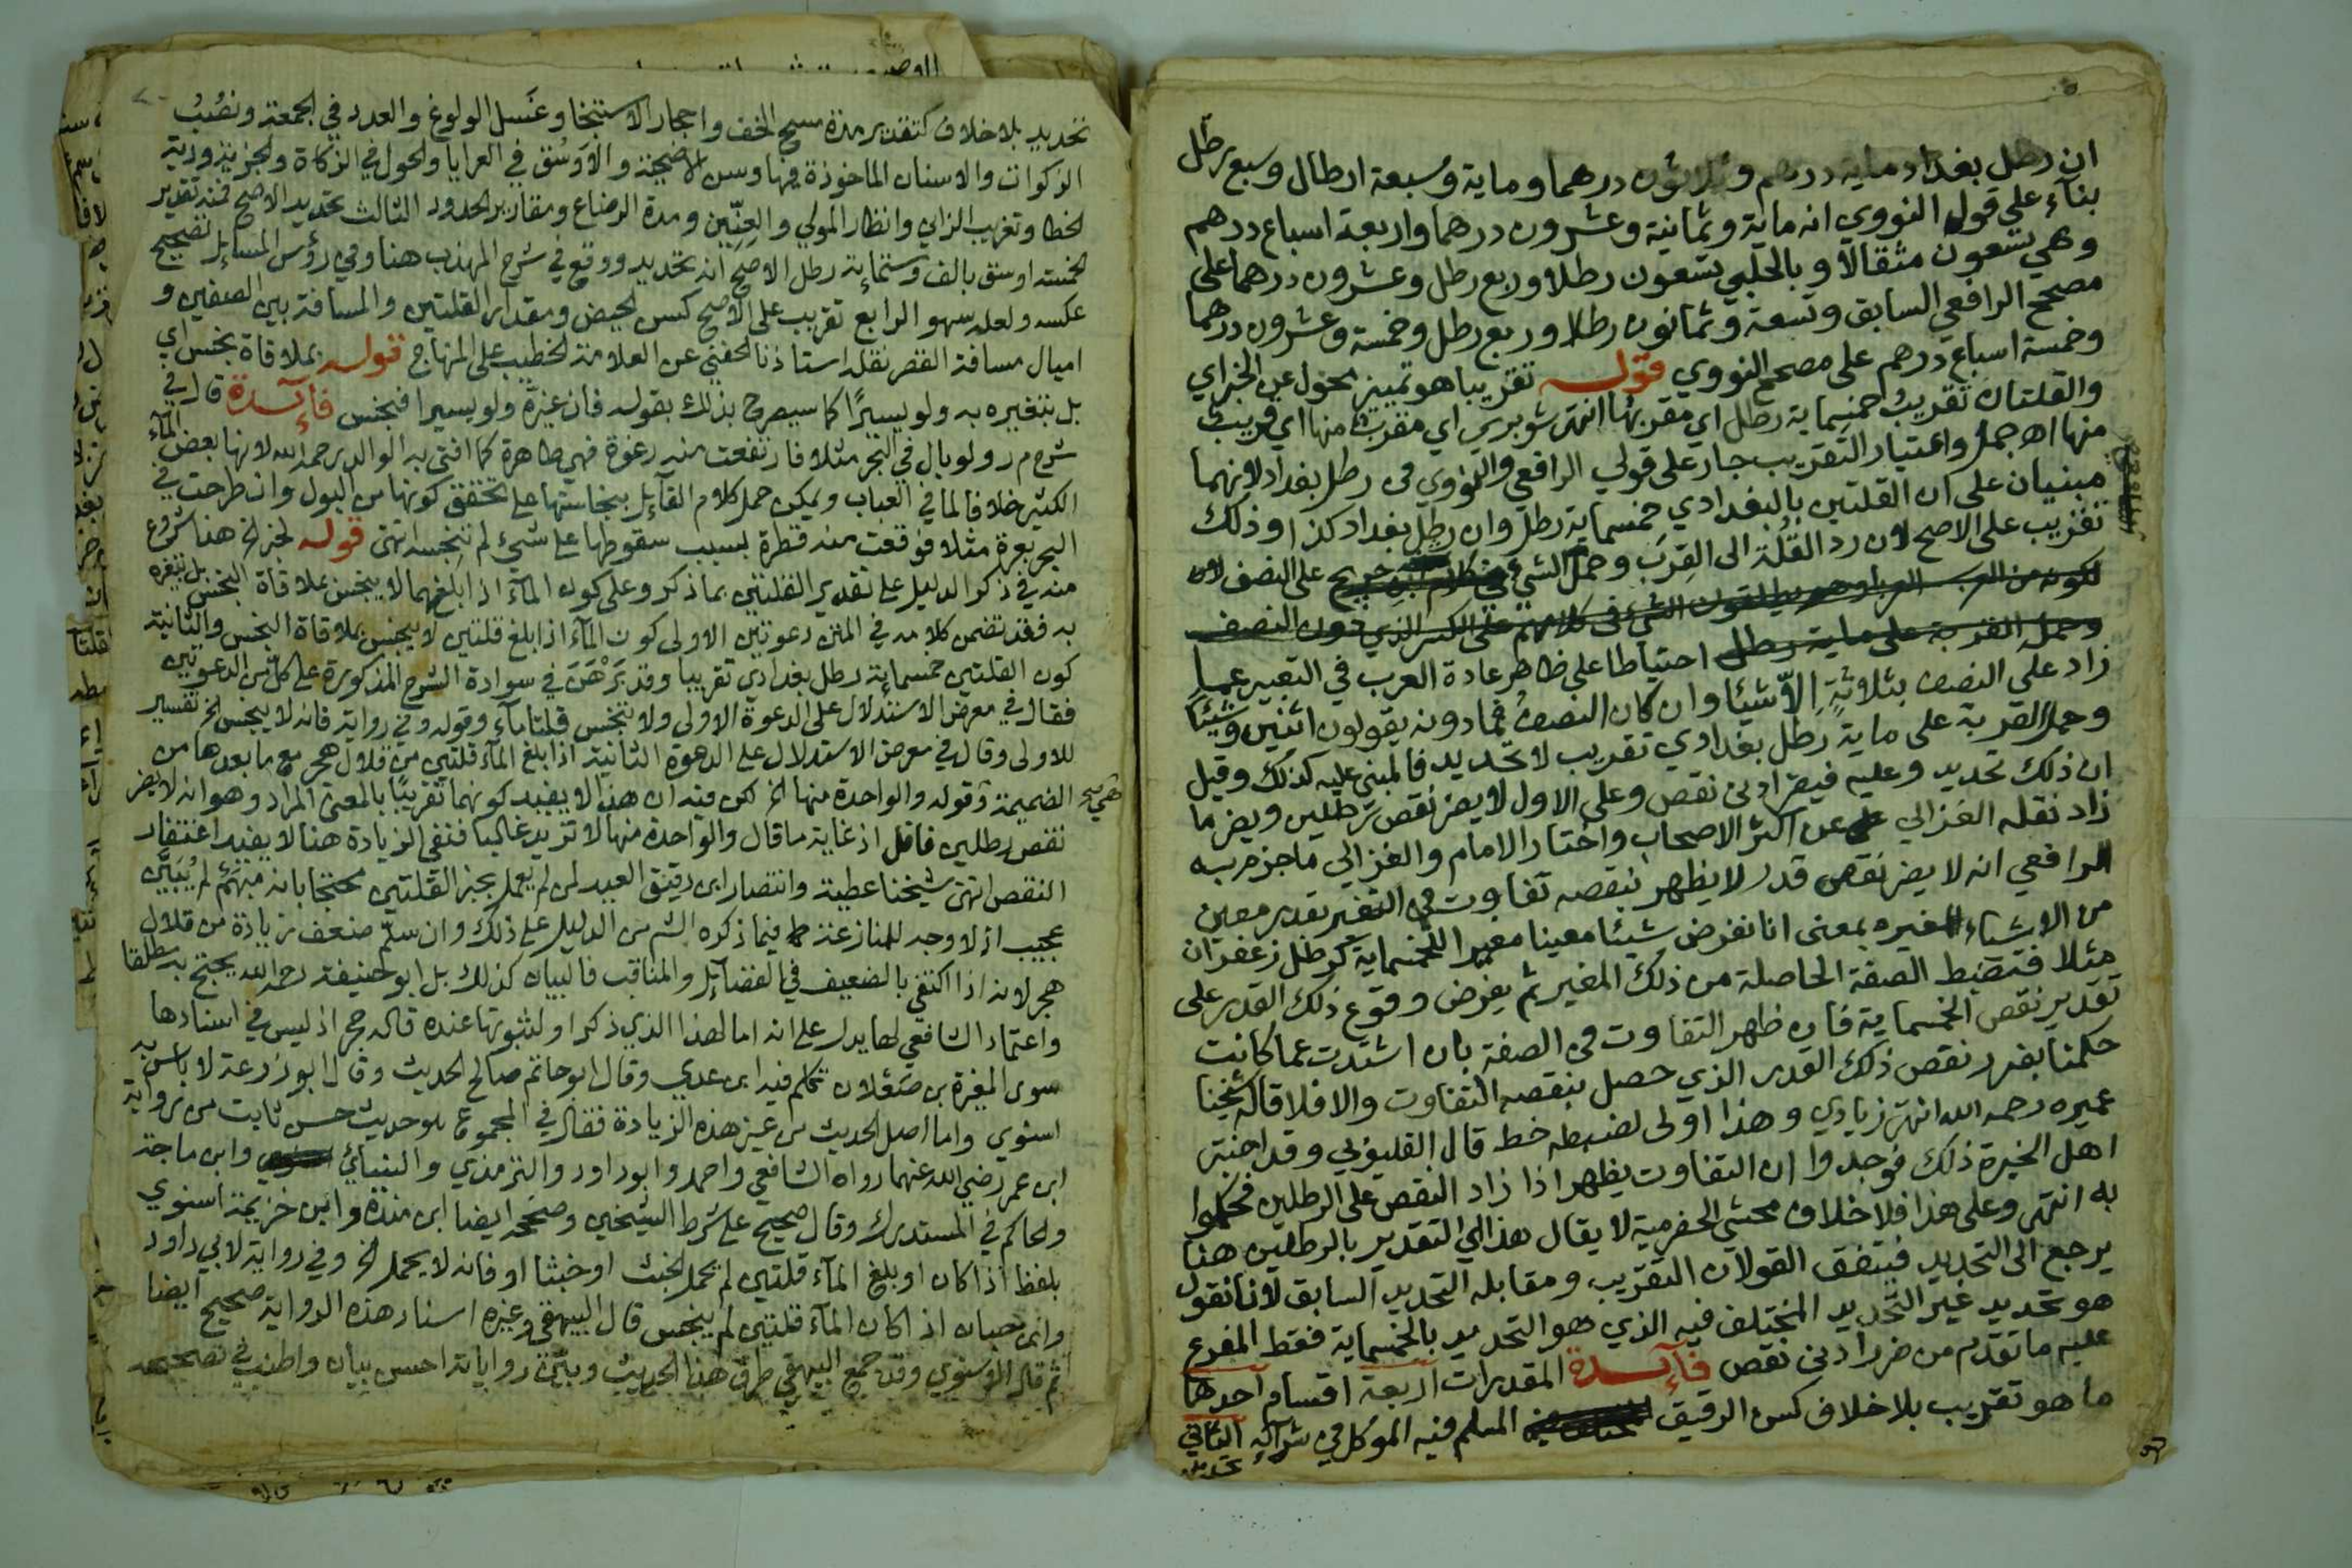 ان رطل بغداد ماية درهم وثلاثون درهما وماية وسبعة ارطال وسبع رطل
بناء على قول النووي انه ماية وثمانية وعشرون درهما واربعة اسباع درهم
وهي تسعون مثقالا وبالحلبي تسعون رطلا وربع رطل وعشرون درهما على
مصحح الرافعي السابق وتسعة وثمانون رطلا وربع رطل وخمسة وعشرون درهما
وخمسة اسباع درهم على مصحح النووي قوله تقريبا هو تمييز محول عن الخبر اي
والقلتان تقريب خمسماية رطل اي مقربها انتهى شوبري اي مقرب منها اي قريب
منها اه جمل واعتبار التقريب جار على قولي الرافعي والنووي في رطل بغداد لانهما
مبنيان على ان القلتين بالبغدادي خمسماية رطل وان رطل بغداد كذا وذلك
تقريب على الاصح لان رد القلة الى القرب وحمل الشيء على النصف لان
احتياطا على ظاهر عادة العرب في التعبير عما
زاد على النصف بثلاثة الا شيئا وان كان النصف فما دونه يقولون اثنين وشيئا
وحمل القربة على ماية رطل بغدادي تقريب لا تحديد فالمبني عليه كذلك وقيل
ان ذلك تحديد وعليه فيضر ادنى نقص وعلى الاول لا يضر نقص رطلين ويضر ما
زاد نقله الغزالي عن اكثر الاصحاب واختار الامام والغزالي ما جزم به
الرافعي انه لا يضر نقص قدر لا يظهر بنقصه تفاوت في التغير بقدر معين
من الاشياء المغيره بمعنى انا نفرض شيئا معينا مغيرا للخمسماية كرطل زعفران
مثلا فتضبط الصفة الحاصلة من ذلك المغير ثم يفرض وقوع ذلك القدر على
تقدير نقص الخمسماية فان ظهر التفاوت في الصفة بان اشتدت عما كانت
حكمنا بضرر نقص ذلك القدر الذي حصل بنقصه التفاوت والا فلا قاله شيخنا
عميره رحمه الله انتهى زيادي وهذا اولى لضبطه خط قال القليوبي وقد اختبر
اهل الخبرة ذلك فوجدوا ان التفاوت يظهر اذا زاد النقص على الرطلين فحكموا
به انتهى وعلى هذا فلا خلاف محشي الحضرمية لا يقال هذا اي التقدير بالرطلين هنا
يرجع الى التحديد فيتفق القولان التقريب ومقابله التحديد السابق لانا نقول
هو تحديد غير التحديد المختلف فيه الذي هو التحديد بالخمسماية فقط المفرع
عليه ما تقدم من ضرر ادنى نقص فائدة المقدرات اربعة اقسام احدها
ما هو تقريب بلا خلاف كسن الرقيق المسلم فيه الموكل في شرائه الثاني
تحديد
تحديد بلا خلاف كتقدير مدة مسح الخف واحجار الاستنجا وغسل الولوغ والعدد في الجمعة ونصب
الزكوات والاسنان الماخوذة فيها وسن الاضحية والاوسق في العرايا والحول في الزكاة والجزية ودية
الخطا وتغريب الزاني وانظار المولي والعنين ومدة الرضاع ومقادير الحدود الثالث تحديد الاصح فمنه تقدير
الخمسة اوسق بالف وستماية رطل الاصح انه تحديد ووقع في شرح المهذب هنا وفي رؤس المسايل تصحيح
عكسه ولعله سهو الرابع تقريب على الاصح كسن الحيض ومقدار القلتين والمسافة بين الصفين و
اميال مسافة القصر نقله استاذنا الحفني عن العلامة الخطيب على المنهاج قوله بملاقاة نجس اي
بل بتغيره به ولو يسيرا كما سيصرح بذلك بقوله فان غيره ولو يسيرا فنجس فائدة قال في
شرح م ر ولو بال في البحر مثلا فارتفعت منه رغوة فهي طاهرة كما افتى به الوالد رحمه الله لانها بعض الماء
الكثير خلافا لما في العباب ويمكن حمل كلام القائل بنجاستها على تحقق كونها من البول وان طرحت في
البحر بعرة مثلا فوقعت منه قطرة بسبب سقوطها على شيء لم تنجسه انتهى قوله لخبر الخ هذا شروع
منه في ذكر الدليل على تقدير القلتين بما ذكر وعلى كون الماء اذا ابلغهما لا ينجس بملاقاة النجس بل بتغيره
به فقد تضمن كلامه في المتن دعوتين الاولى كون الماء اذا بلغ قلتين لا ينجس بملاقاة النجس والثانية
كون القلتين خمسماية رطل بغدادي تقريبا وقد برهن في سوادة الشرح المذكورة على كل من الدعوتين
فقال في معرض الاستدلال على الدعوة الاولى ولا تنجس قلتا ماء وقوله وفي رواية فانه لا ينجس الخ تفسير
للاولى وقال في معرض الاستدلال على الدعوة الثانية اذا بلغ الماء قلتين من قلال هجر مع ما بعدها من
الضميمة وقوله والواحدة منها الخ لكن فيه ان هذا لا يفيد كونهما تقريبا بالمعنى المراد وهو انه لا يضر
نقص رطلين فاقل اذ غاية ما قال والواحدة منها لا تزيد غالبا فنفي الزيادة هنا لا يفيد اغتفار
النقص انتهى شيخنا عطية وانتصار ابن دقيق العيد لمن لم يعمل بخبر القلتين محتجا بانه مبهم لم يبين
عجيب اذ لا وجه للمنازعة فيما ذكره الش من الدليل على ذلك وان سلم ضعف زيادة من قلال
هجر لانه اذا اكتفي بالضعيف في الفضائل والمناقب فالبيان كذلك بل ابو حنيفة رحمه الله يحتج به مطلقا
واعتماد الشافعي لها يدل على انه اما لهذا الذي ذكر او لثبوتها عنده قاله حجر اذ ليس في اسنادها
سوى المغيرة بن صقلان تكلم فيه ابن عدي وقال ابو حاتم صالح الحديث وقال ابو زرعة لا باس به
اسنوي واما اصل الحديث من غير هذه الزيادة فقال في المجموع هو حديث حسن ثابت من رواية
ابن عمر رضي الله عنهما رواه الشافعي واحمد وابو داود والترمذي والنسائي وابن ماجة
والحاكم في المستدرك وقال صحيح على شرط الشيخين وصححه ايضا ابن مندة وابن خزيمة اسنوي
بلفظ اذا كان او بلغ الماء قلتين لم يحمل الخبث او خبثا او فانه لا يحمل الخ وفي رواية لابي داود
وابن حبان اذا كان الماء قلتين لم ينجس قال البيهقي وغيره اسناد هذه الرواية صحيح ايضا
ثم قال الاسنوي وقد جمع البيهقي طرق هذا الحديث وبين رواياته احسن بيان واطنب في تصحيحه